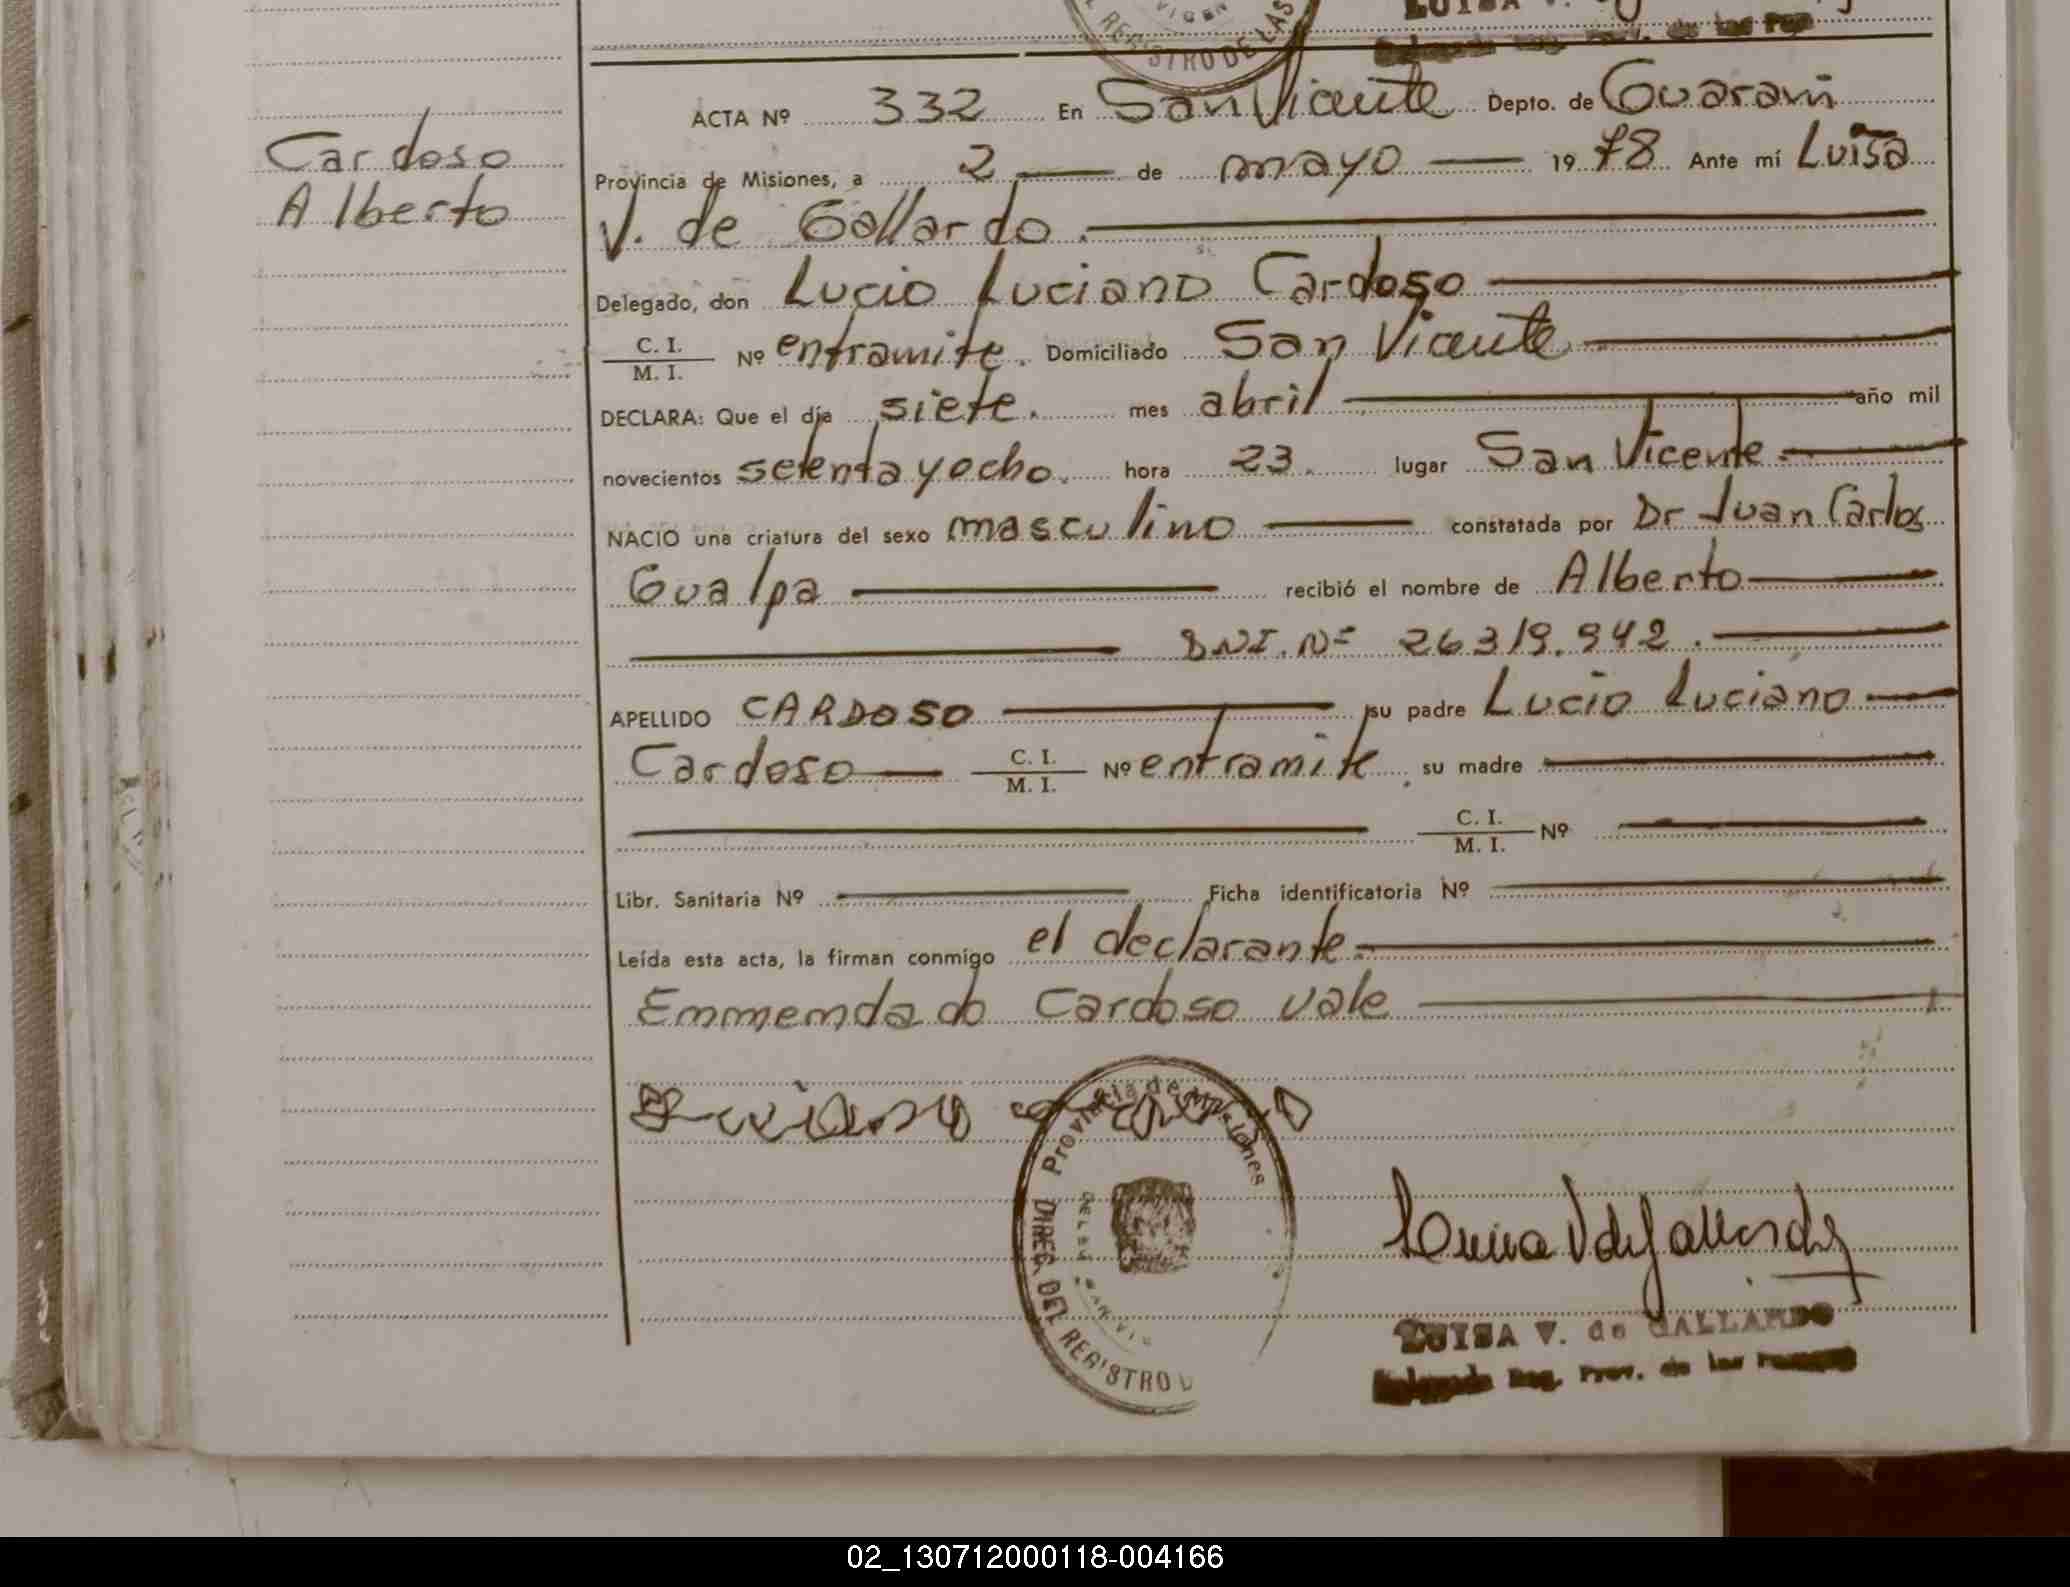 LUISA V.
VICEN
REGISTRO DE LAS
Prov. de las Per
ACTA Nº 332 En San Vicente Depto. de Guarani
Cardoso
Alberto
Provincia de Misiones, a 2 de mayo 19 78 Ante mí Luisa
V. de Gallardo.
Delegado, don Lucio Luciano Cardoso
C. I.
M. I. Nº entramite. Domiciliado San Vicente
DECLARA: Que el día siete. mes abril año mil
novecientos setenta y ocho. hora 23. lugar San Vicente.
NACIO una criatura del sexo masculino constatada por Dr Juan Carlos
Gualpa recibió el nombre de Alberto
DNI. Nº 26319.942.
APELLIDO CARDOSO su padre Lucio Luciano
Cardoso C. I.
M. I. Nº entramite. su madre
C. I.
M. I. Nº
Libr. Sanitaria Nº Ficha identificatoria Nº
Leída esta acta, la firman conmigo el declarante.
Emmemdado Cardoso vale
Provincia de Misiones
DIREC. DEL REGISTRO D
Luisa V de Gallardo
LUISA V. de GALLARDO
Delegada Reg. Prov. de las Personas
02_130712000118-004166